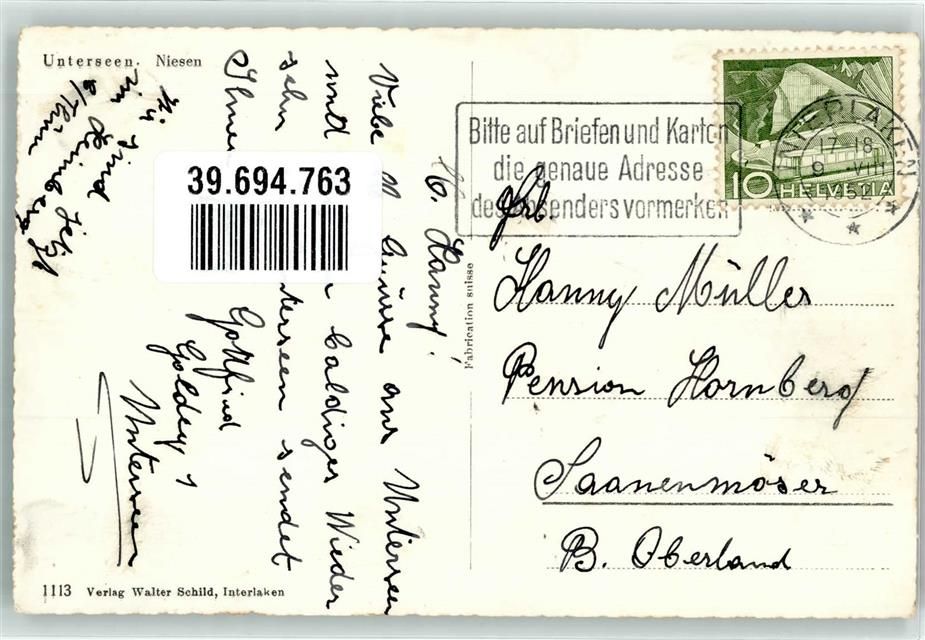 Unterseen. Niesen
H. Hanny!
Viele Grüsse aus Unterseen
und baldiges Wieder
sehn Unterseen sendet
Ihnen Gottfried
Goldey 1
Unterseen
sind jetzt
im Heimberg
b/Thun
39.694.763
1113 Verlag Walter Schild, Interlaken
Fabrication suisse
Bitte auf Briefen und Karten
die genaue Adresse
des Absenders vormerken
INTERLAKEN
17-18
9 VIII
1952
10 HELVETIA
Frl.
Hanny Müller
Pension Hornberg
Saanenmöser
B. Oberland